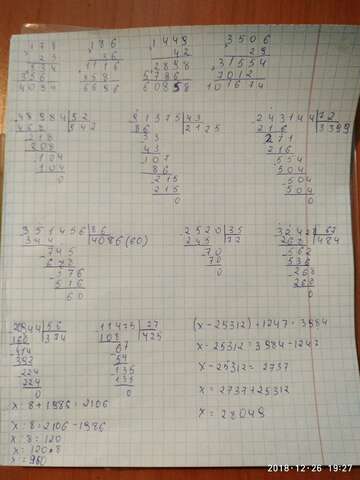 178 186 1449 3506
× 23 × 36 × 42 × 29
534 1116 2898 31554
356 558 5796 7012
4094 6696 60858 101674
52 91375 43 243144 72
542 86 2125 216 3399
218 53 271
208 43 216
104 107 554
104 86 504
0 215 504
215 504
0 0
351456 86 2520 35 67
344 4086(60) 245 72 268 484
745 70 562
688 70 536
576 0 268
516 268
60 0
56 11475 27 (x-25312)+1247=3984
374 108 425 x-25312=3984-1247
67 x-25312=2737
54 x=2737+25312
224 135 x=28049
224 135
0 0
x:8+1986=2106
x:8=2106-1986
x:8=120
x=120·8
x=960
2018-12-26 19:27